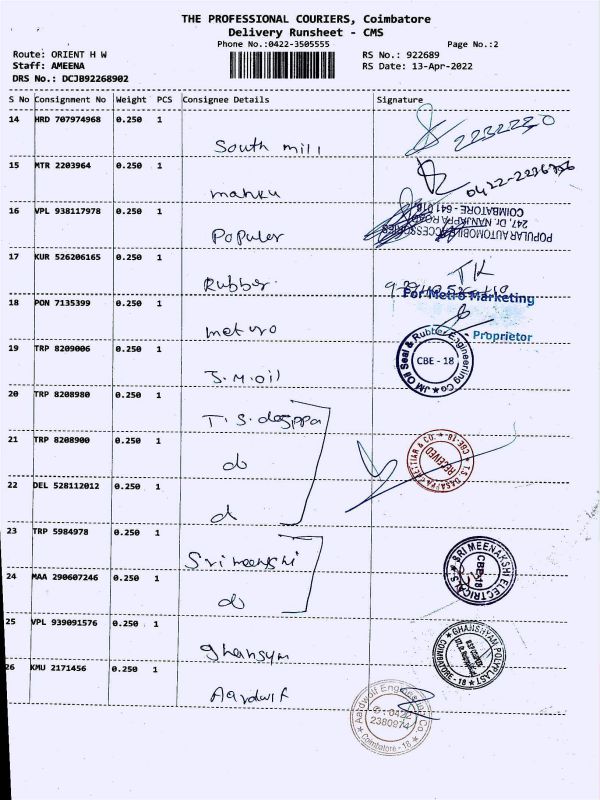 THE PROFESSIONAL COURIERS, Coimbatore
Delivery Runsheet - CMS
Phone No.:0422-3505555 Page No.:2
Route: ORIENT H W RS No.: 922689
Staff: AMEENA RS Date: 13-Apr-2022
DRS No.: DCJB92268902
S No Consignment No Weight PCS Consignee Details Signature
14 HRD 707974968 0.250 1
South mill 2232220
15 MTR 2203964 0.250 1
0422-2236756
16 VPL 938117978 0.250 1
Populer
POPULAR AUTOMOBILE ACCESSORIES
247, Dr. NANJAPPA ROAD
COIMBATORE - 641 018
17 KUR 526206165 0.250 1
Rubber. TK
For Metro Marketing
18 PON 7135399 0.250 1
metro
Proprietor
19 TRP 8209006 0.250 1
J.M.oil
JM Oil Seal & Rubber Engineering Co
CBE - 18
20 TRP 8208980 0.250 1
T.S.dasppa
21 TRP 8208900 0.250 1
do
T.S. DASAPPA CHETTIAR & CO. CBE-18
RECEIVED
22 DEL 528112012 0.250 1
d
23 TRP 5984978 0.250 1
Srimeenshi
SRI MEENAKSHI ELECTRICALS
CBE-18
24 MAA 290607246 0.250 1
do
25 VPL 939091576 0.250 1
ghansym
GHANSHYAM POLYPLAST
COIMBATORE - 18
26 KMU 2171456 0.250 1
Aardwlf
Aardwolf Engineering Co.
✆ : 0422
2380974
Coimbatore - 18